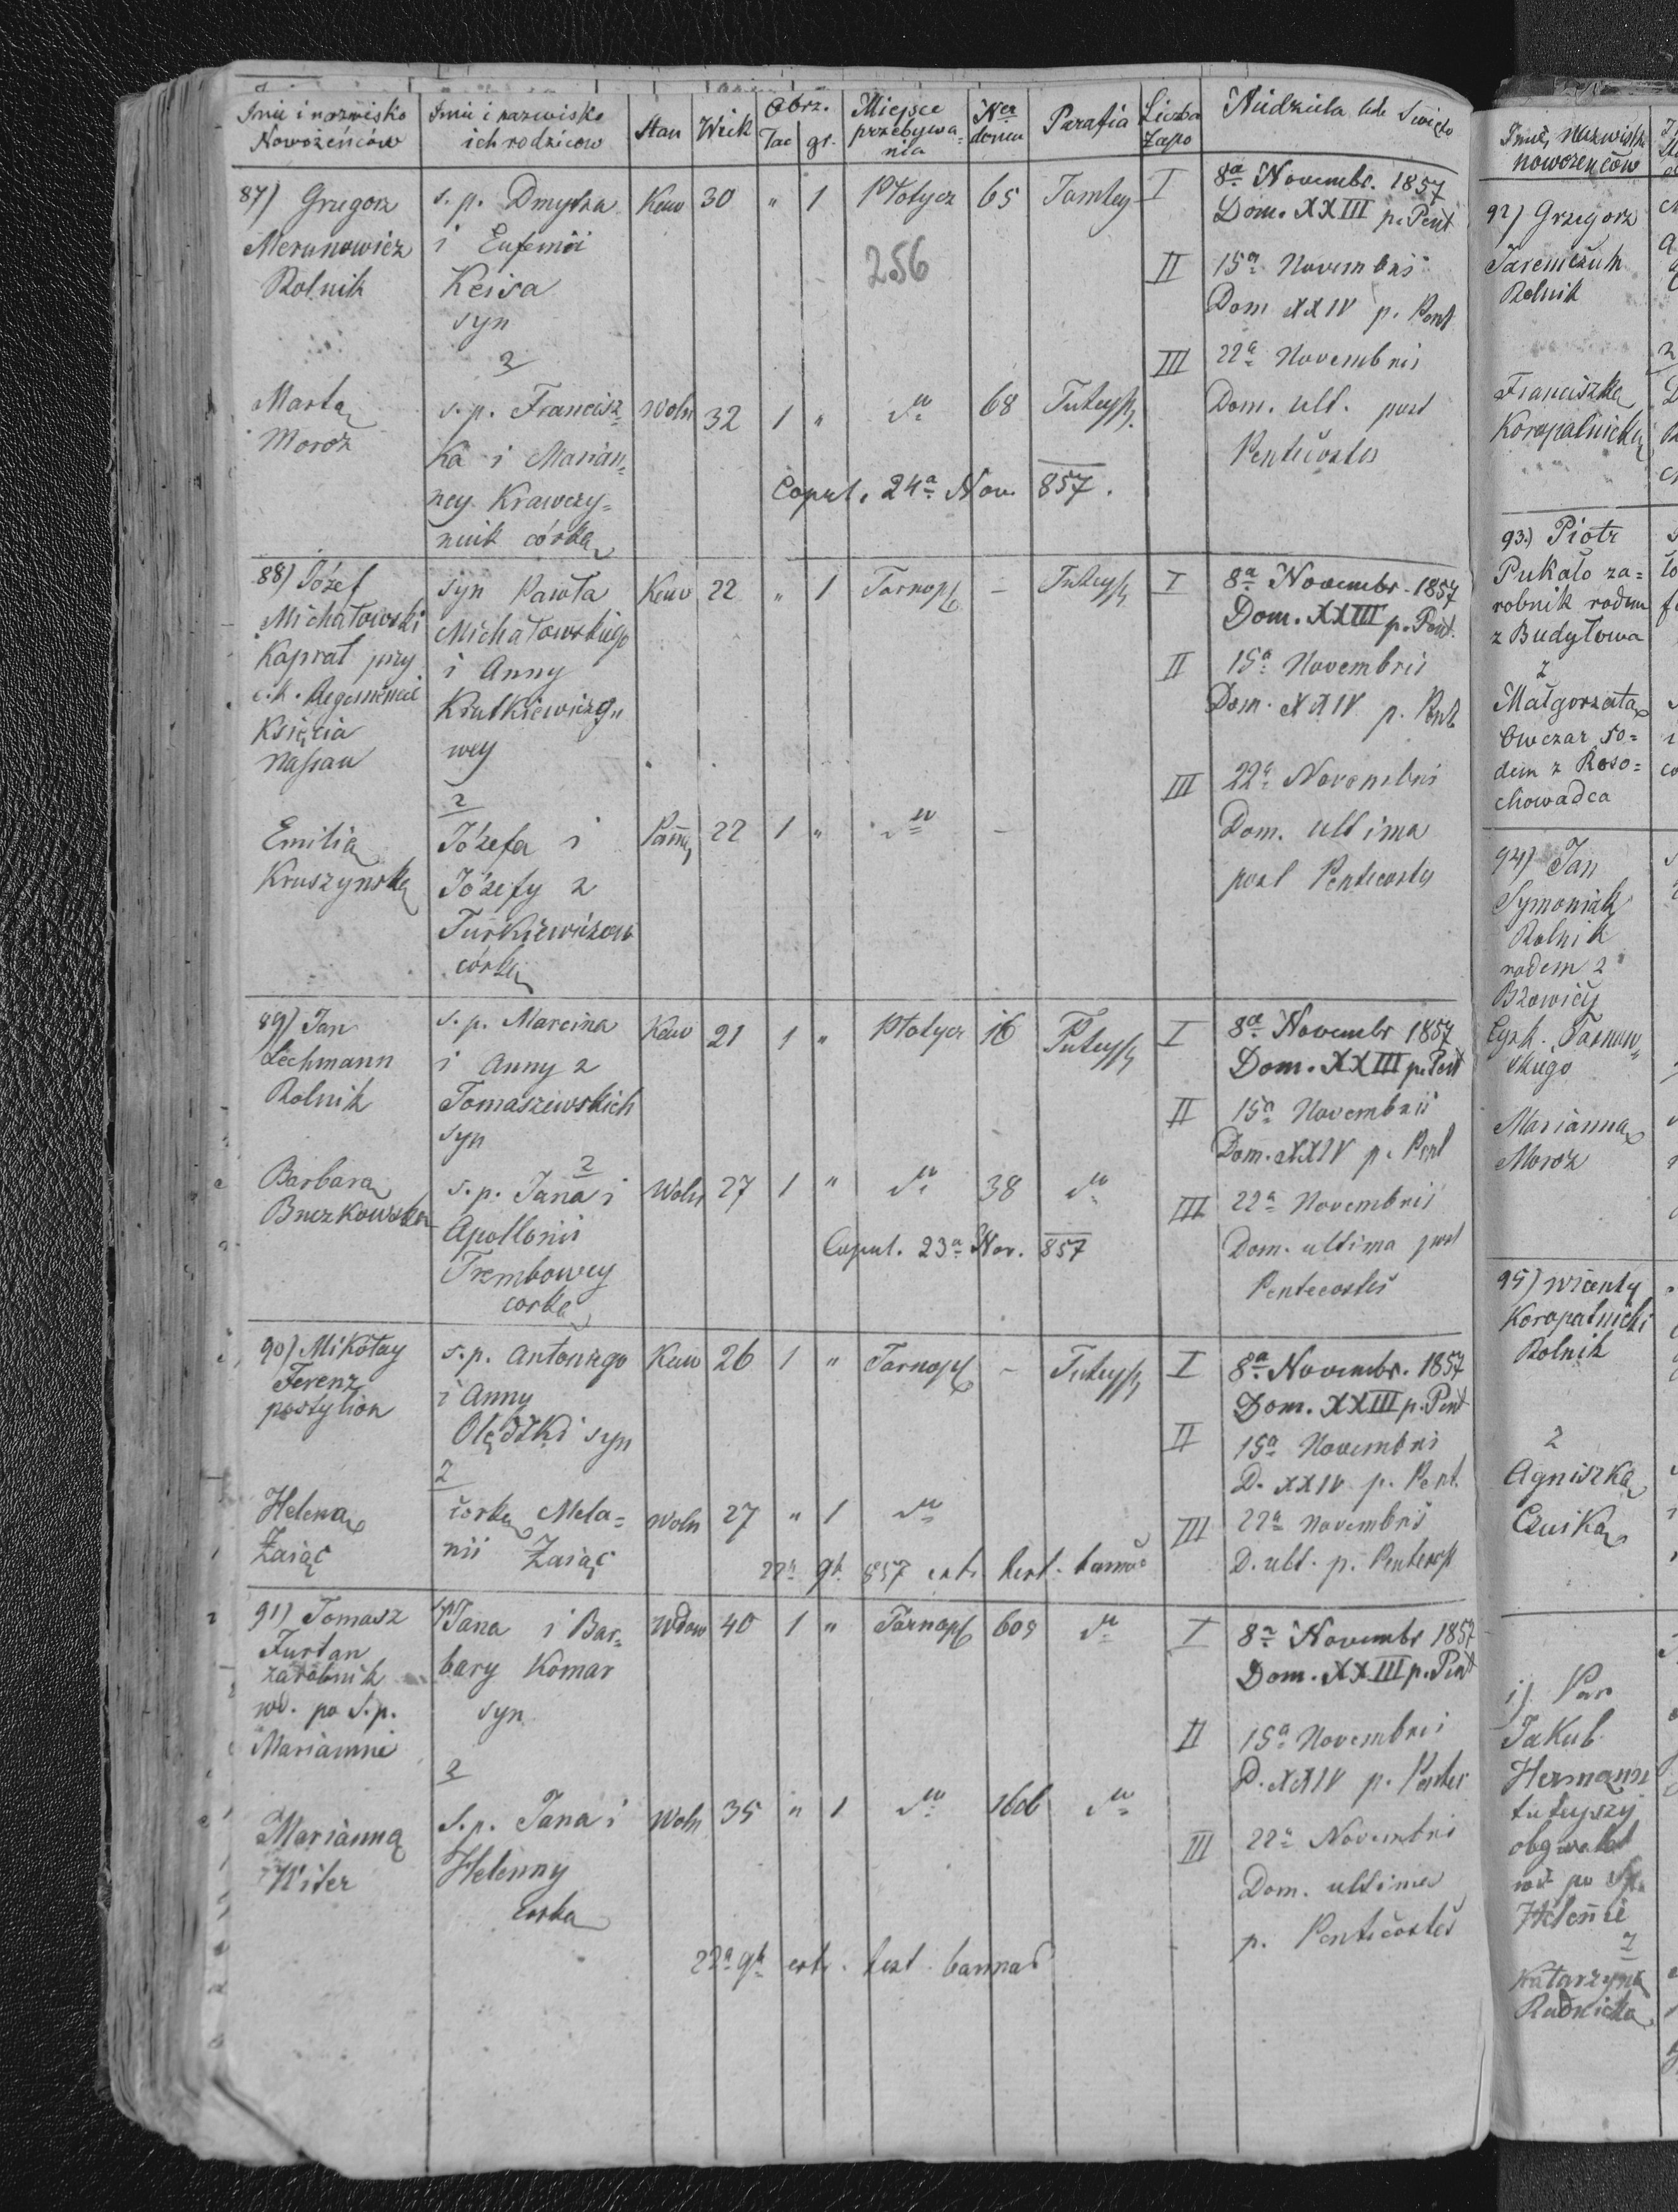 Imie i nazwisko Nowożeńców | Imie i nazwisko ich rodziców | Stan | Wiek | Obrz. łac gr. | Miejsce przebywa=nia | Ner domu | Parafia | Liczba Zapo | Niedziela lub Święto
87) Grzegorz
Merunowicz
Rolnik
s. p. Dmytra
i Eufemii
Keisa
syn
z
Kaw 30 " 1 Płotycz 65 Tamtey
256
I 8a Novembr. 1857
Dom. XXIII p. Pent
II 15a Novembris
Dom XXIV p. Pent
III 22a Novembris
Dom. ult. post
Pentecostes
Marta
Moroz
s. p. Francisz=
ka i Marian=
ney Krawczy=
niuk córka
Woln 32 1 " dto 68 Tuteysz.
Copul. 24a Nov. 857.
88) Józef
Michałowski
Kaprał przy
c. k. Regimencie
Księcia
Nassau
syn Pawła
Michałowskiego
i Anny
Krutkiewiczo
wey
z
Kaw 22 " 1 Tarnop – Tuteysz
I 8a Novembr. 1857
Dom. XXIII p. Pent.
II 15a Novembris
Dom. XXIV p. Pent
III 22a Novembris
Dom. ultima
post Pentecostes
Emilia
Kruszynska
Józefa i
Józefy z
Turkiewiczow
córka
Panna 22 1 " dto –
89) Jan
Lechmann
Rolnik
s. p. Marcina
i Anny z
Tomaszewskich
syn
z
Kaw 21 1 " Płotycz 16 Tuteysz
I 8a Novembr 1857
Dom. XXIII p. Pent
II 15a Novembris
Dom. XXIV p. Pent
III 22a Novembris
Dom. ultima post
Pentecostes
Barbara
Buczkowska
s. p. Jana i
Apollonii
Trembowey
corka
Woln 27 1 " dto 38 dto
Copul. 23a Nov. 857
90) Mikołay
Ferenz
postylion
s. p. Antoniego
i Anny
syn
z
Kaw 26 1 " Tarnop – Tuteysz
I 8a Novembr. 1857
Dom. XXIII p. Pent
II 15a Novembris
D. XXIV p. Pent.
III 22a Novembris
D. ult. p. Pentecost
Helena
Zaiąc
córka Mela=
nii Zaiąc
Woln 27 " 1 dto
22a 9b 857 ext.
91) Tomasz
Furtan
zarobnik
wd. po S. p.
Mariannie
Jana i Bar=
bary Komar
syn
z
Wdow 40 1 " Tarnop 605 dto
I 8a Novembr 1857
Dom. XXIII p. Pent
II 15a Novembris
D. XXIV p. Pentec
III 22a Novembris
Dom. ultima
p. Pentecostes
Marianna
Witer
S. p. Jana i
Helenny
corka
Woln 35 " 1 dto 1606 dto
22a 9b ext. test. bannor
Imie, nazwisko
nowożeńców
92) Grzegorz
Jaremczuk
Rolnik
Franciszka
Koropatnicka
93.) Piotr
Pukało za=
robnik rodem
z Budyłowa
z
Małgorzata
Owczar ro=
dem z Roso=
chowadca
94) Jan
Symoniak
Rolnik
rodem z
Cyrk. Tarnow
skiego
Marianna
Moroz
95) Wicenty
Koropatnicki
Rolnik
z
Agniszka
Czuika
1) Pan
Jakub
Hermann
tuteyszy
obywatel
wd. po S. p.
Helenie
z
Katarzyna
Rudnicka